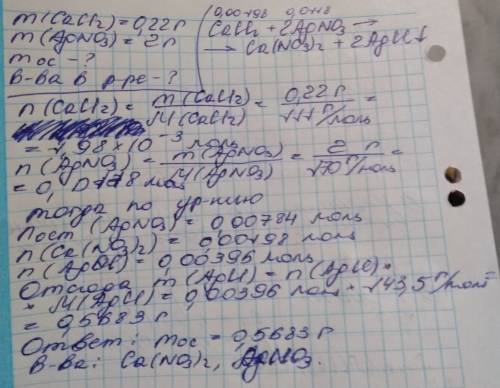 m(CaCl2)=0,22г
m(AgNO3)=2г
mос-?
в-ва в р-ре-?
0,00198 0,0118
CaCl2 + 2AgNO3 →
→ Ca(NO3)2 + 2AgCl↓
n(CaCl2) = m(CaCl2)/M(CaCl2) = 0,22г/111г/моль =
= 1,98×10^-3 моль
n(AgNO3) = m(AgNO3)/M(AgNO3) = 2 г/170г/моль =
= 0,0118 моль
тогда по ур-нию
nост(AgNO3) = 0,00784 моль
n(Ca(NO3)2) = 0,00198 моль
n(AgCl) = 0,00396 моль
Отсюда m(AgCl) = n(AgCl)*
* M(AgCl) = 0,00396 моль * 143,5г/моль
= 0,5683 г
Ответ: mос = 0,5683 г
В-ва: Ca(NO3)2, AgNO3.